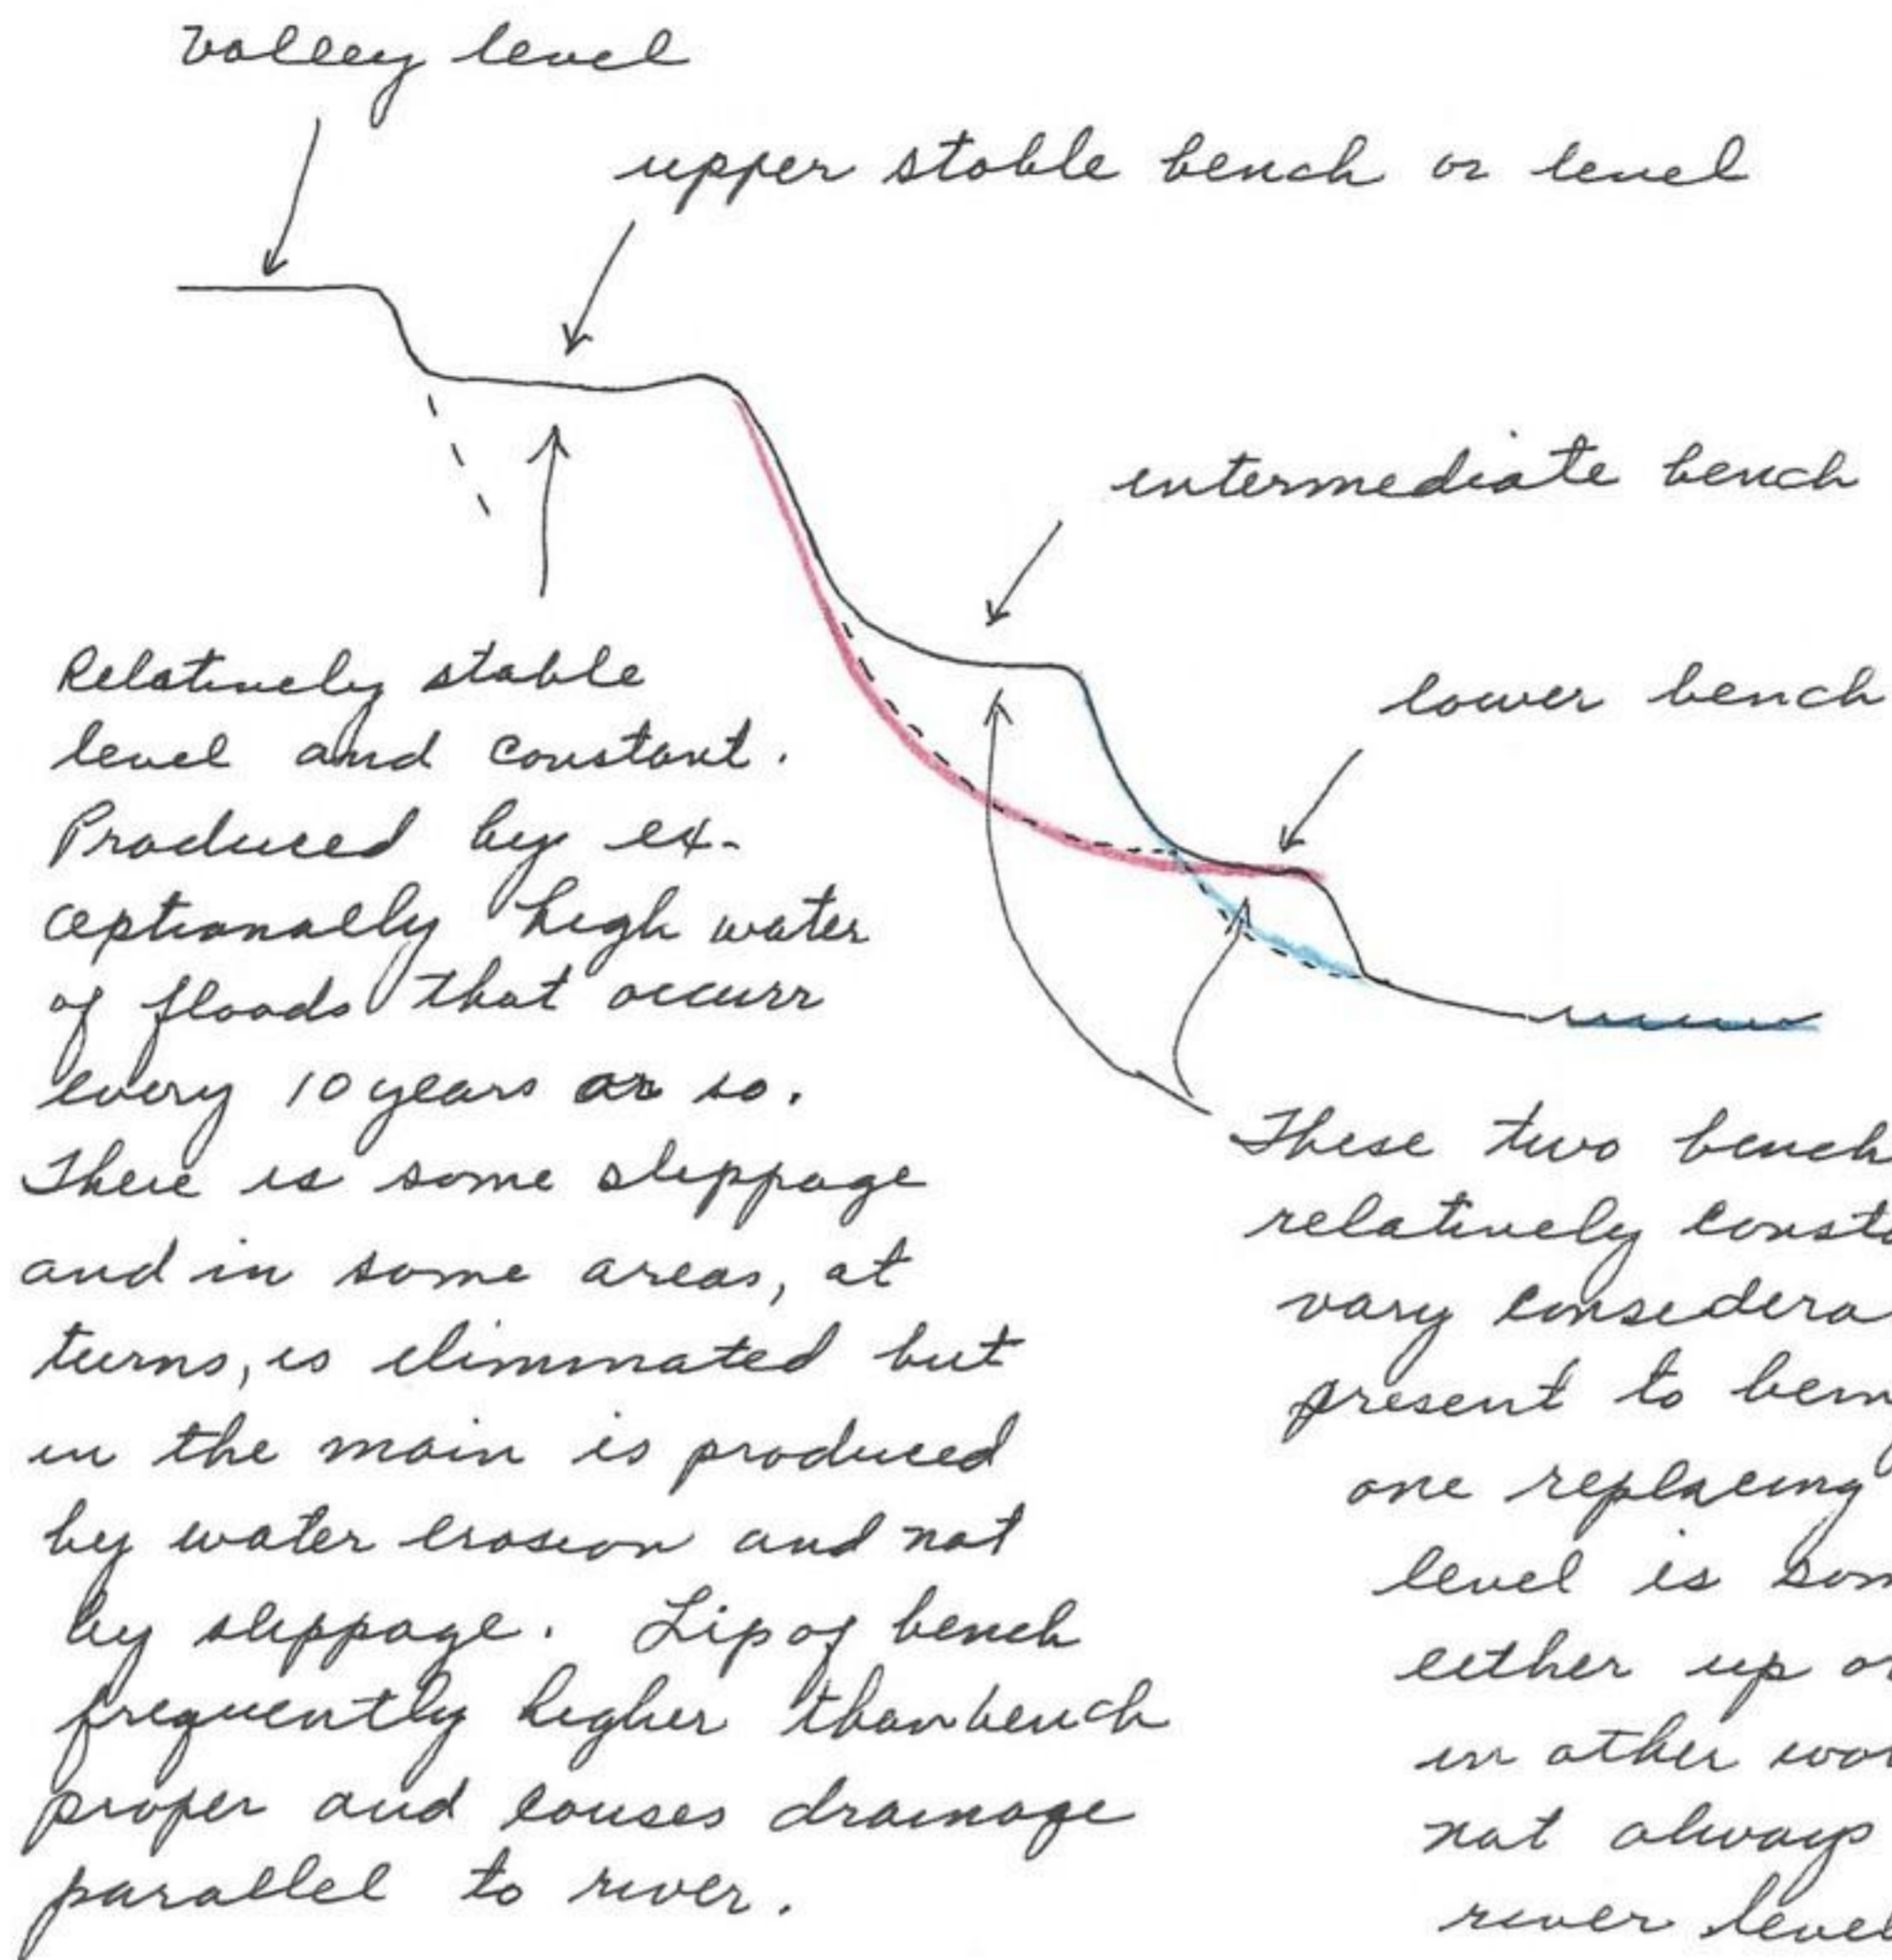 Valley level
upper stable bench or level
intermediate bench
lower bench
Relatively stable
level and constant.
Produced by ex-
ceptionally high water
of floods that occurr
every 10 years or so.
There is some slippage
and in some areas, at
turns, is eliminated but
in the main is produced
by water erosion and not
by slippage. Lip of bench
frequently higher than bench
proper and causes drainage
parallel to river.
These two bench
relatively consta
vary considera
present to bein
one replacing
level is som
either up or
in other wor
not always
river level